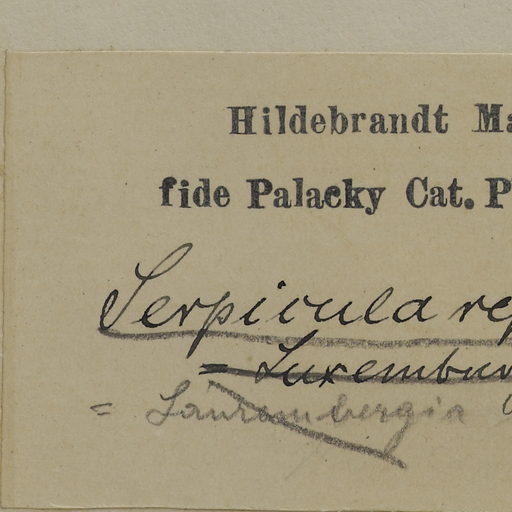 Hildebrandt Ma
fide Palacky Cat. P
Serpicula rep
= Luxembur
= Laurembergia